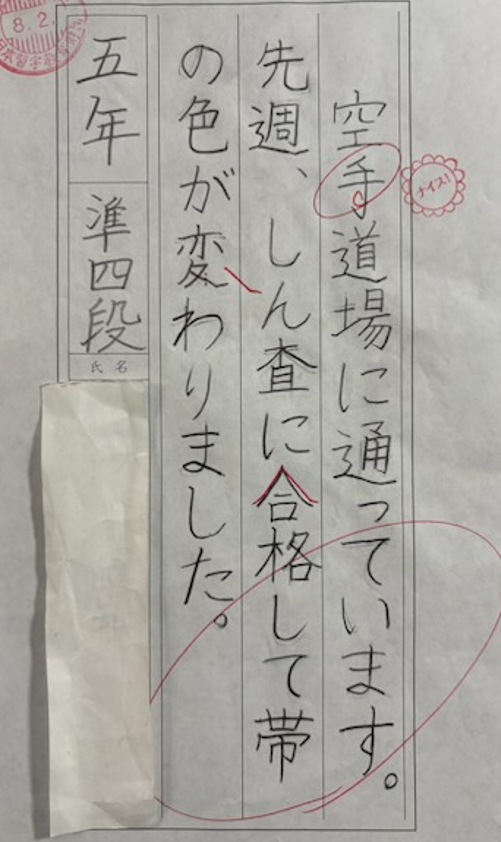 空手道場に通っています。
先週、しん査に合格して帯
の色が変わりました。
五年 準四段
氏名
ナイス!
8.2.